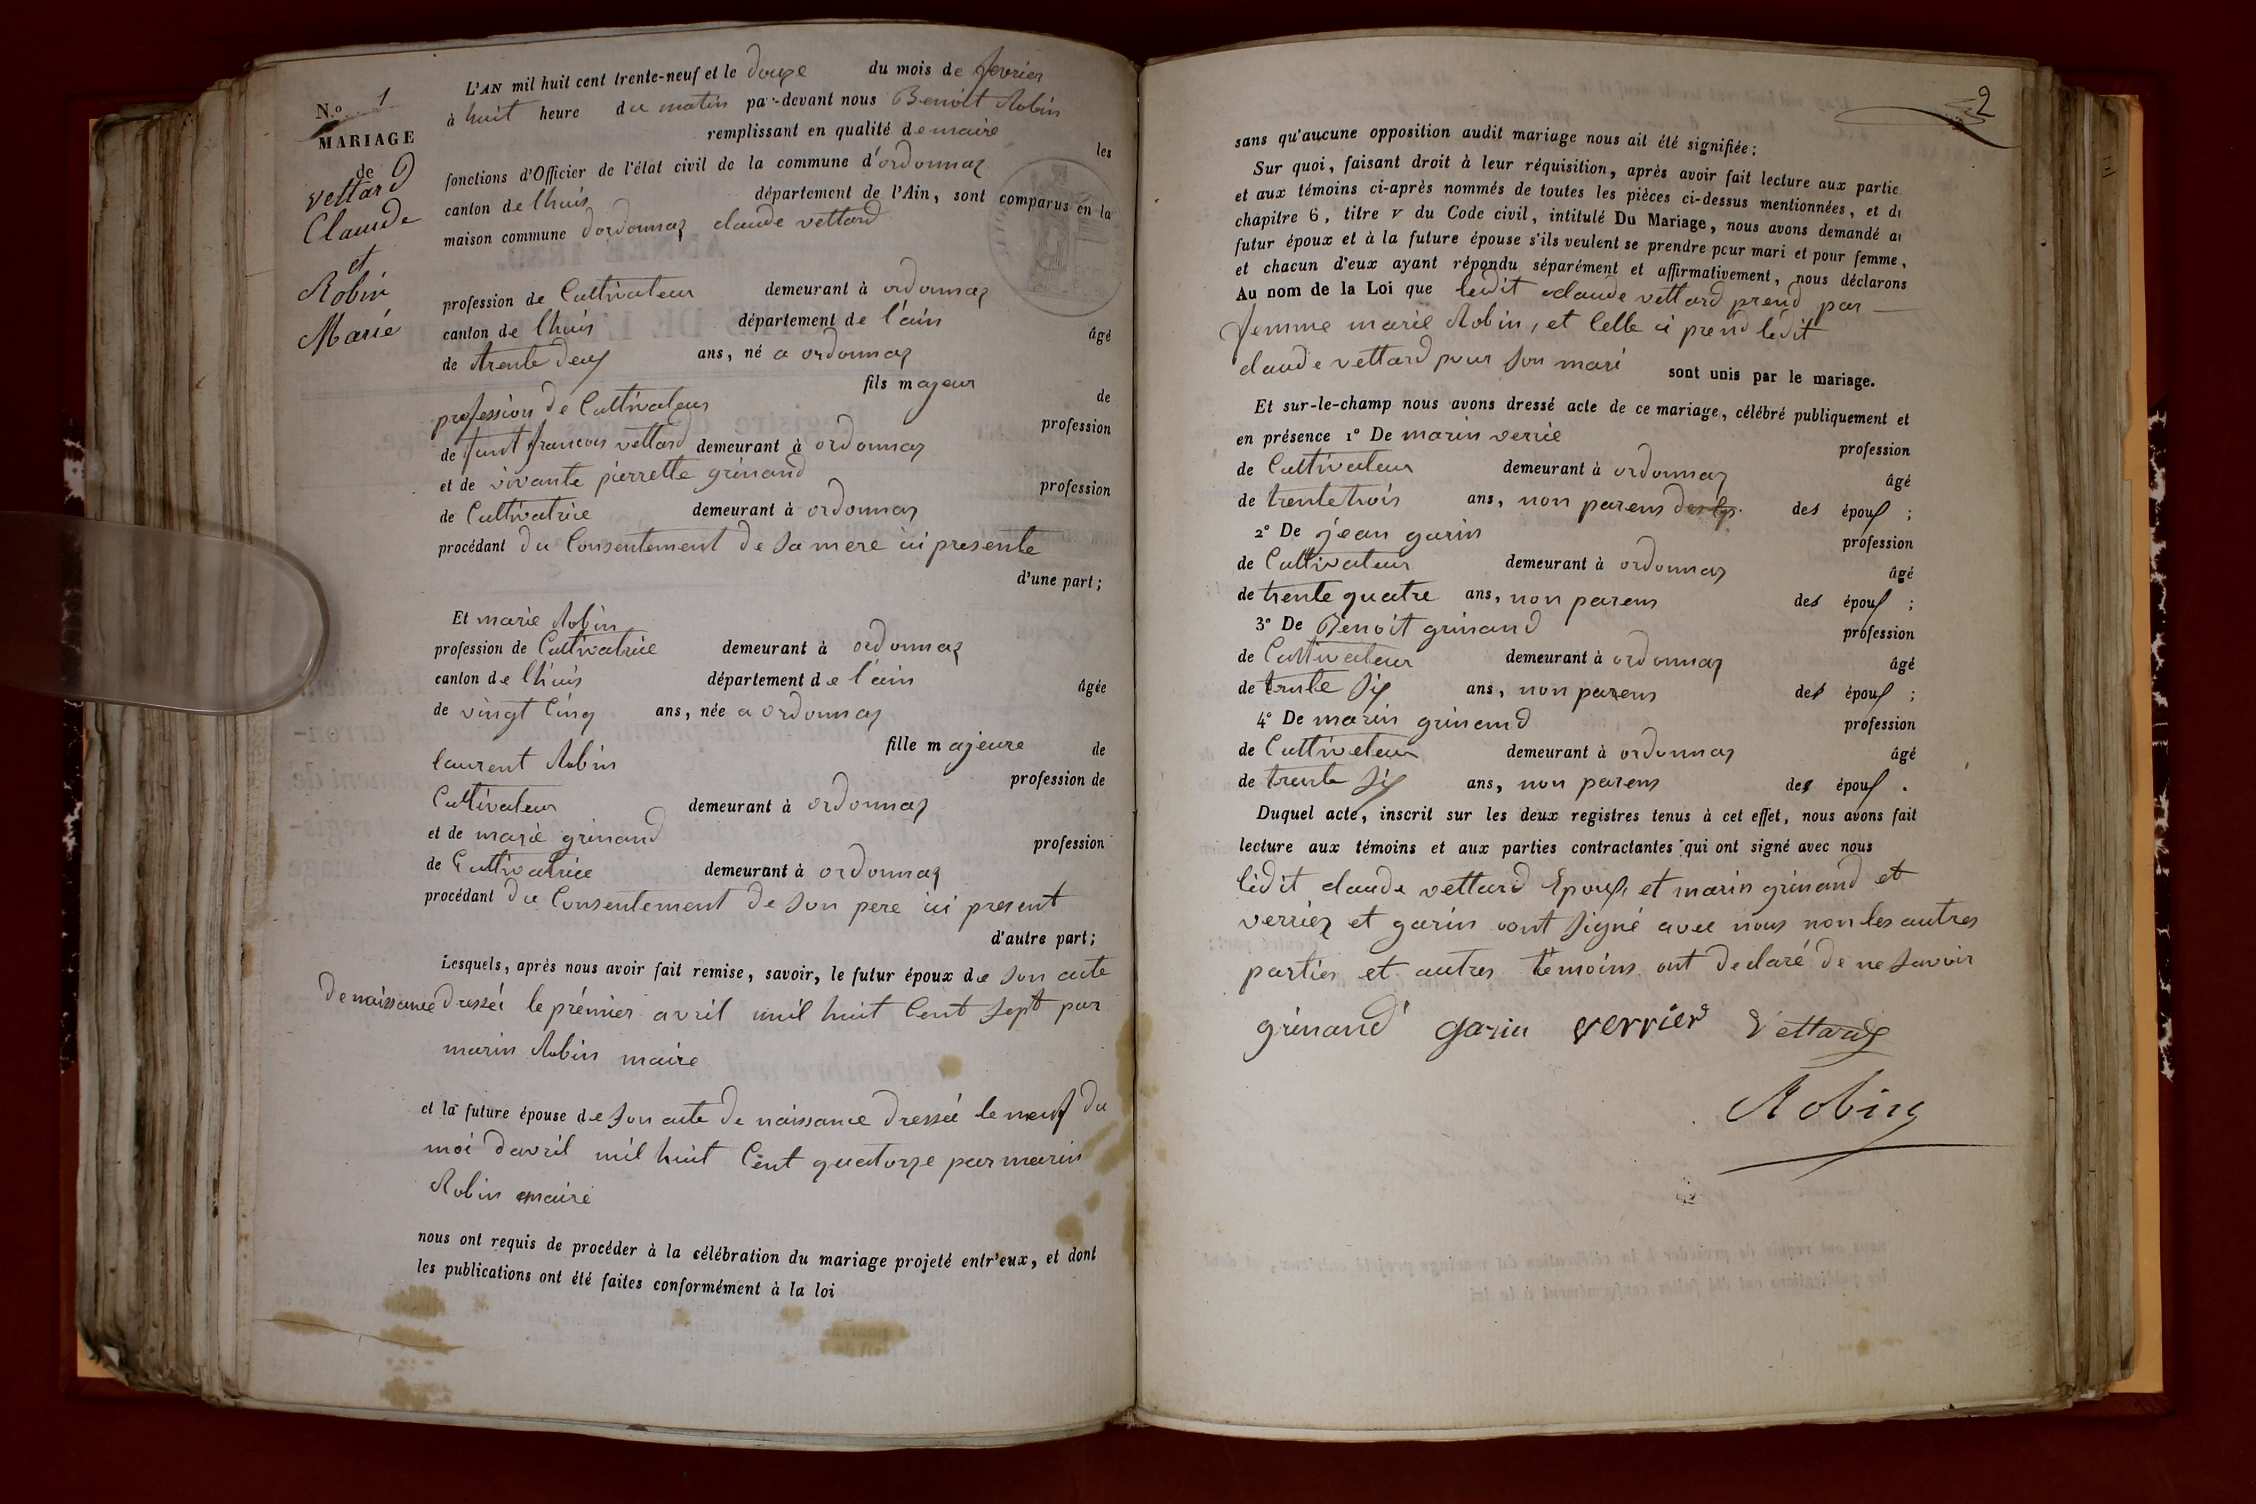 N.o 1
MARIAGE
de
vettard
Claude
et
Robin
Marie
L'AN mil huit cent trente-neuf et le douze du mois de fevrier
à huit heure du matin par-devant nous Benoit Robin
remplissant en qualité de maire les
fonctions d'Officier de l'état civil de la commune d'ordonnaz
canton de lhuis département de l'Ain, sont comparus en la
maison commune dordonnaz claude vettard
profession de Cultivateur demeurant à ordonnaz
canton de lhuis département de l'ain âgé
de trente deux ans, né a ordonnaz
fils majeur de
profession de Cultivateur profession
de funt francois vettard demeurant à ordonnaz
et de vivante pierrette grinand profession
de Cultivatrice demeurant à ordonnaz
procédant du Consentement de sa mere ici presente
d'une part;
Et marie Robin
profession de Cultivatrice demeurant à ordonnaz
canton de lhuis département de l'ain âgée
de vingt Cinq ans, née a ordonnaz
fille majeure de
laurent Robin profession de
Cultivateur demeurant à ordonnaz
et de marie grinand profession
de Cultivatrice demeurant à ordonnaz
procédant du Consentement de son pere ici present
d'autre part;
Lesquels, après nous avoir fait remise, savoir, le futur époux de son acte
de naissance dresséé le prémier avril mil huit Cent sept par
marin Robin maire
et la future épouse de son acte de naissance dresséé le neuf du
moi davril mil huit Cent quatorze par marin
Robin maire
nous ont requis de procéder à la célébration du mariage projeté entr'eux, et dont
les publications ont été faites conformément à la loi
2
sans qu'aucune opposition audit mariage nous ait été signifiée;
Sur quoi, faisant droit à leur réquisition, après avoir fait lecture aux partie
et aux témoins ci-après nommés de toutes les pièces ci-dessus mentionnées, et du
chapitre 6, titre v du Code civil, intitulé Du Mariage, nous avons demandé au
futur époux et à la future épouse s'ils veulent se prendre pour mari et pour femme,
et chacun d'eux ayant répondu séparément et affirmativement, nous déclarons
Au nom de la Loi que ledit claude vettard prend par
femme marie Robin, et Celle ci prend lédit
claude vettard pour son mari sont unis par le mariage.
Et sur-le-champ nous avons dressé acte de ce mariage, célébré publiquement et
en présence 1° De marin verrie profession
de Cultivateur demeurant à ordonnaz âgé
de trente trois ans, non parens des époux;
2° De jean garin profession
de Cultivateur demeurant à ordonnaz âgé
de trente quatre ans, non parens des époux;
3° De Benoit grinand profession
de Cultivateur demeurant à ordonnaz âgé
de trente six ans, non parens des époux;
4° De marin grinand profession
de Cultivateur demeurant à ordonnaz âgé
de trente six ans, non parens des époux.
Duquel acte, inscrit sur les deux registres tenus à cet effet, nous avons fait
lecture aux témoins et aux parties contractantes qui ont signé avec nous
lédit claude vettard Epoux, et marin grinand et
verriez et garin ont signé avec nous non les autres
parties et autres témoins ont declaré de ne savoir
grinand garin verrier Vettard
Robin